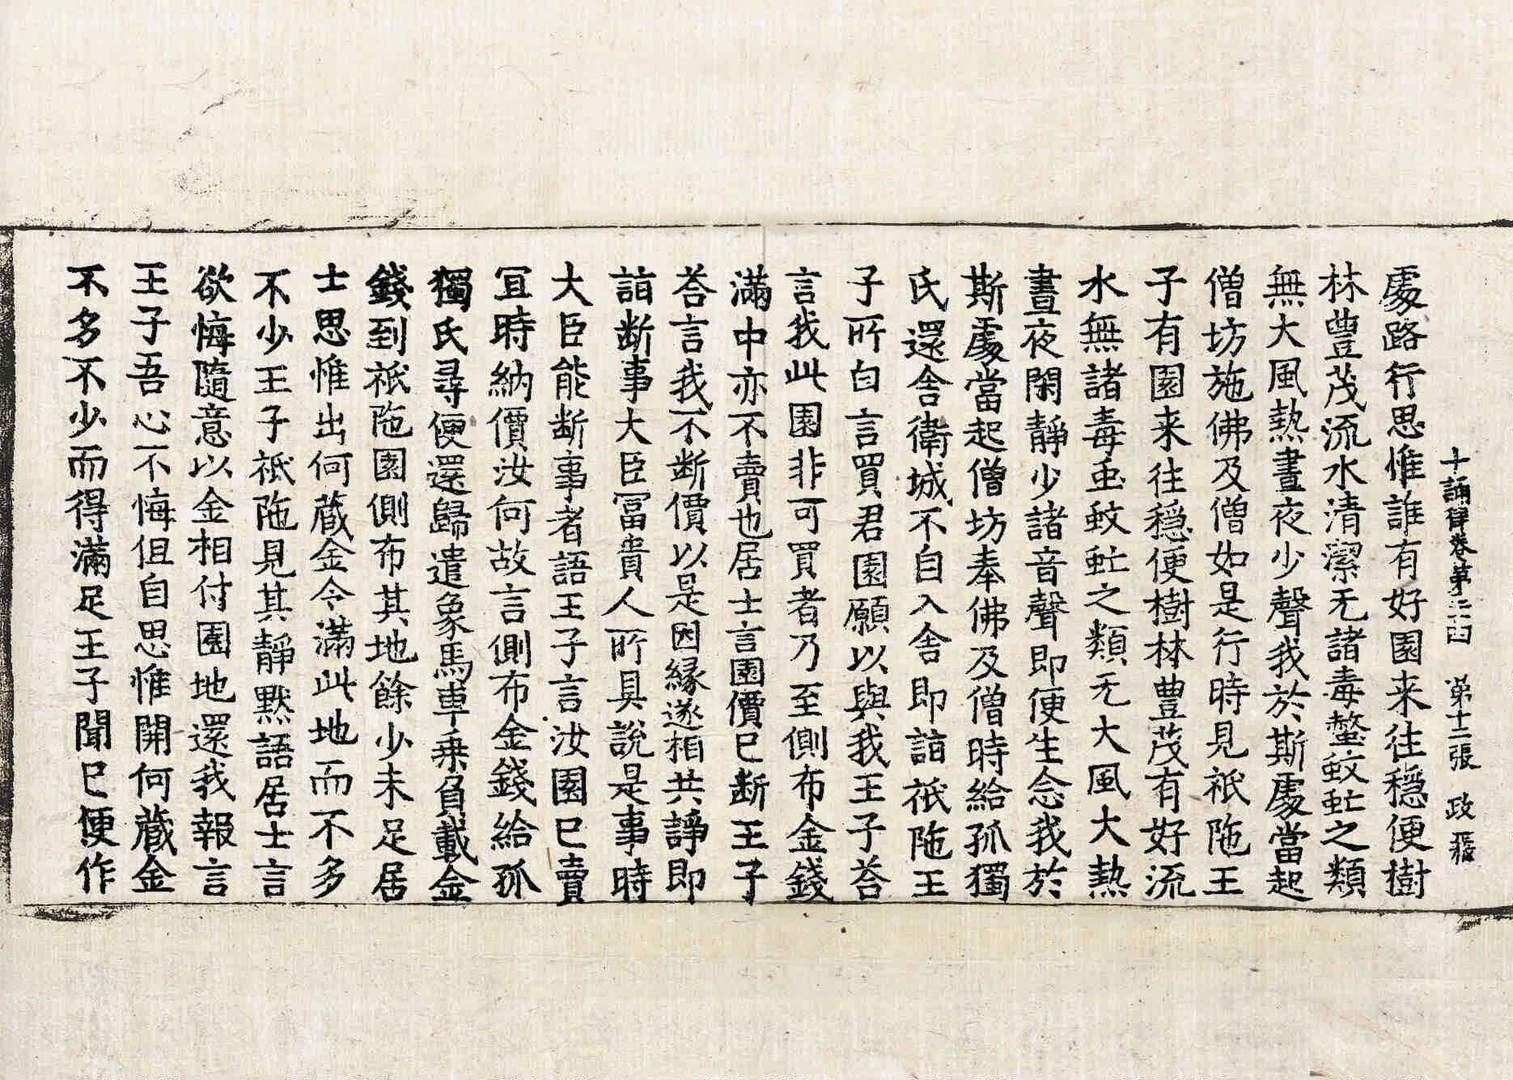 十誦律卷第三十四 第十二張 政
處路行思惟誰有好園来往穩便樹
林豊茂流水清潔无諸毒螫蚊虻之類
無大風熱晝夜少聲我於斯處當起
僧坊施佛及僧如是行時見祇陁王
子有園来往穩便樹林豊茂有好流
水無諸毒䖝蚊虻之類无大風大熱
晝夜閑靜少諸音聲即便生念我於
斯處當起僧坊奉佛及僧時給孤獨
氏還舍衛城不自入舍即詣祇陁王
子所白言買君園願以與我王子荅
言我此園非可買者乃至側布金錢
滿中亦不賣也居士言園價已断王子
荅言我不断價以是因縁遂相共諍即
詣断事大臣冨貴人所具說是事時
大臣能断事者語王子言汝園已賣
冝時納價汝何故言側布金錢給孤
獨氏尋便還歸遣象馬車乗負載金
錢到祇陁園側布其地餘少未足居
士思惟出何藏金令滿此地而不多
不少王子祇陁見其靜默語居士言
欲悔隨意以金相付園地還我報言
王子吾心不悔但自思惟開何藏金
不多不少而得滿足王子聞已便作